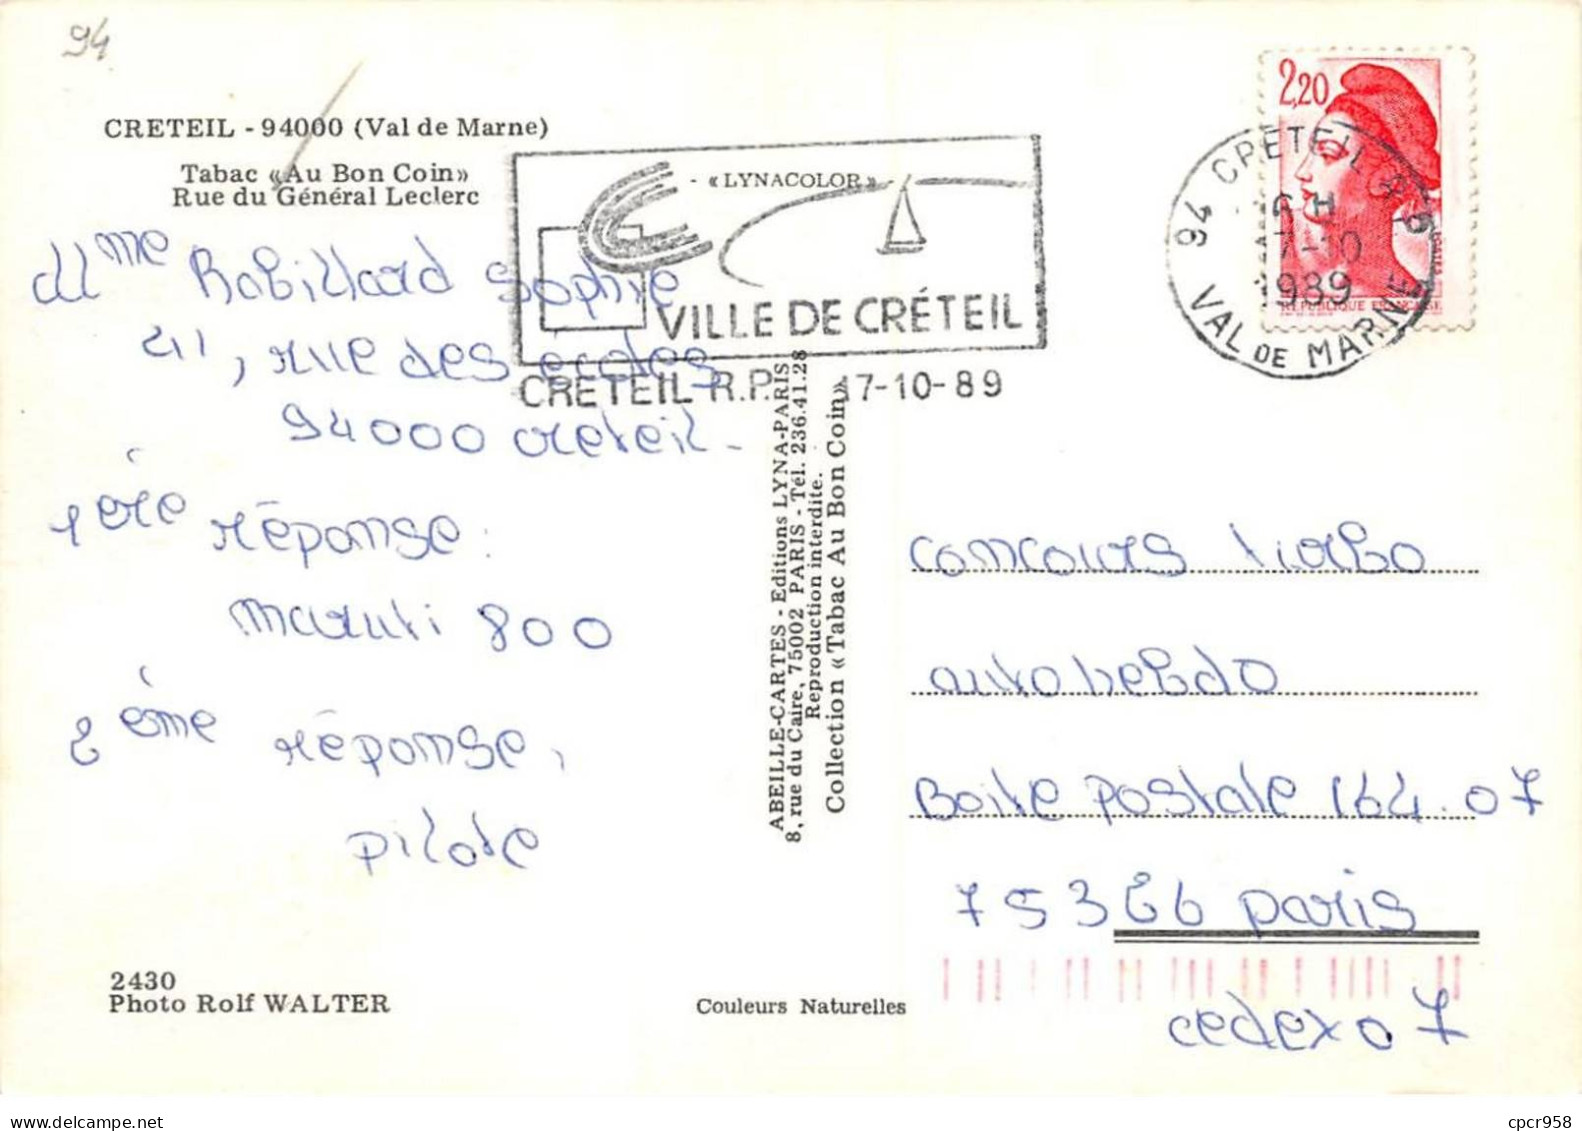 94
CRETEIL - 94000 (Val de Marne)
Tabac «Au Bon Coin»
Rue du Général Leclerc
- «LYNACOLOR» -
VILLE DE CRÉTEIL
CRETEIL R.P. 17-10-89
2,20
REPUBLIQUE FRANCAISE
94 CRETEIL R.P.
17-10
1989
VAL DE MARNE
Mme Robillard Sophie
41, rue des écoles
94000 creteil -
1ère réponse :
maruti 800
2ème réponse,
pilote
ABEILLE-CARTES - Editions LYNA-PARIS
8, rue du Caire, 75002 PARIS - Tél. 236.41.28
Reproduction interdite.
Collection «Tabac Au Bon Coin»
concours turbo
auto hebdo
Boite postale 164.07
75326 paris
cedex 07
2430
Photo Rolf WALTER
Couleurs Naturelles
cpcr958